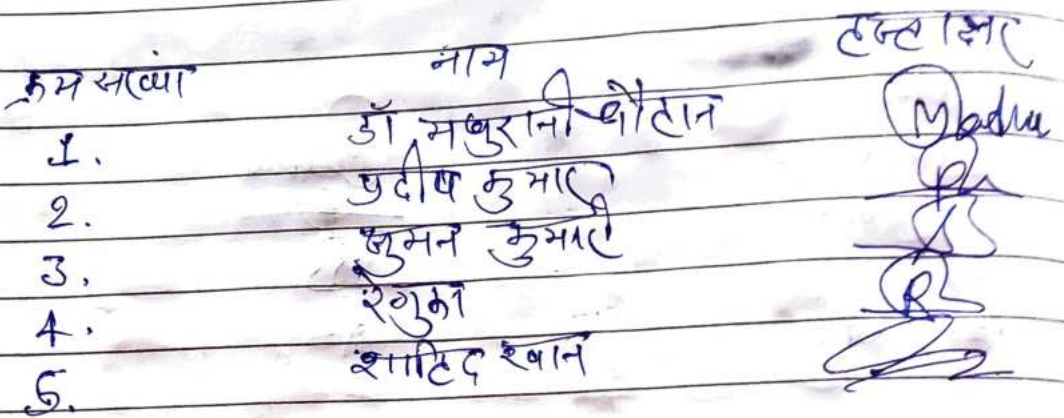 क्रम संख्यां नाम हस्ताक्षर
1. डॉ मधुरानी चौहान Madhu
2. प्रदीप कुमार
3. सुमन कुमारी
4. रेणुका
5. शाहिद खान